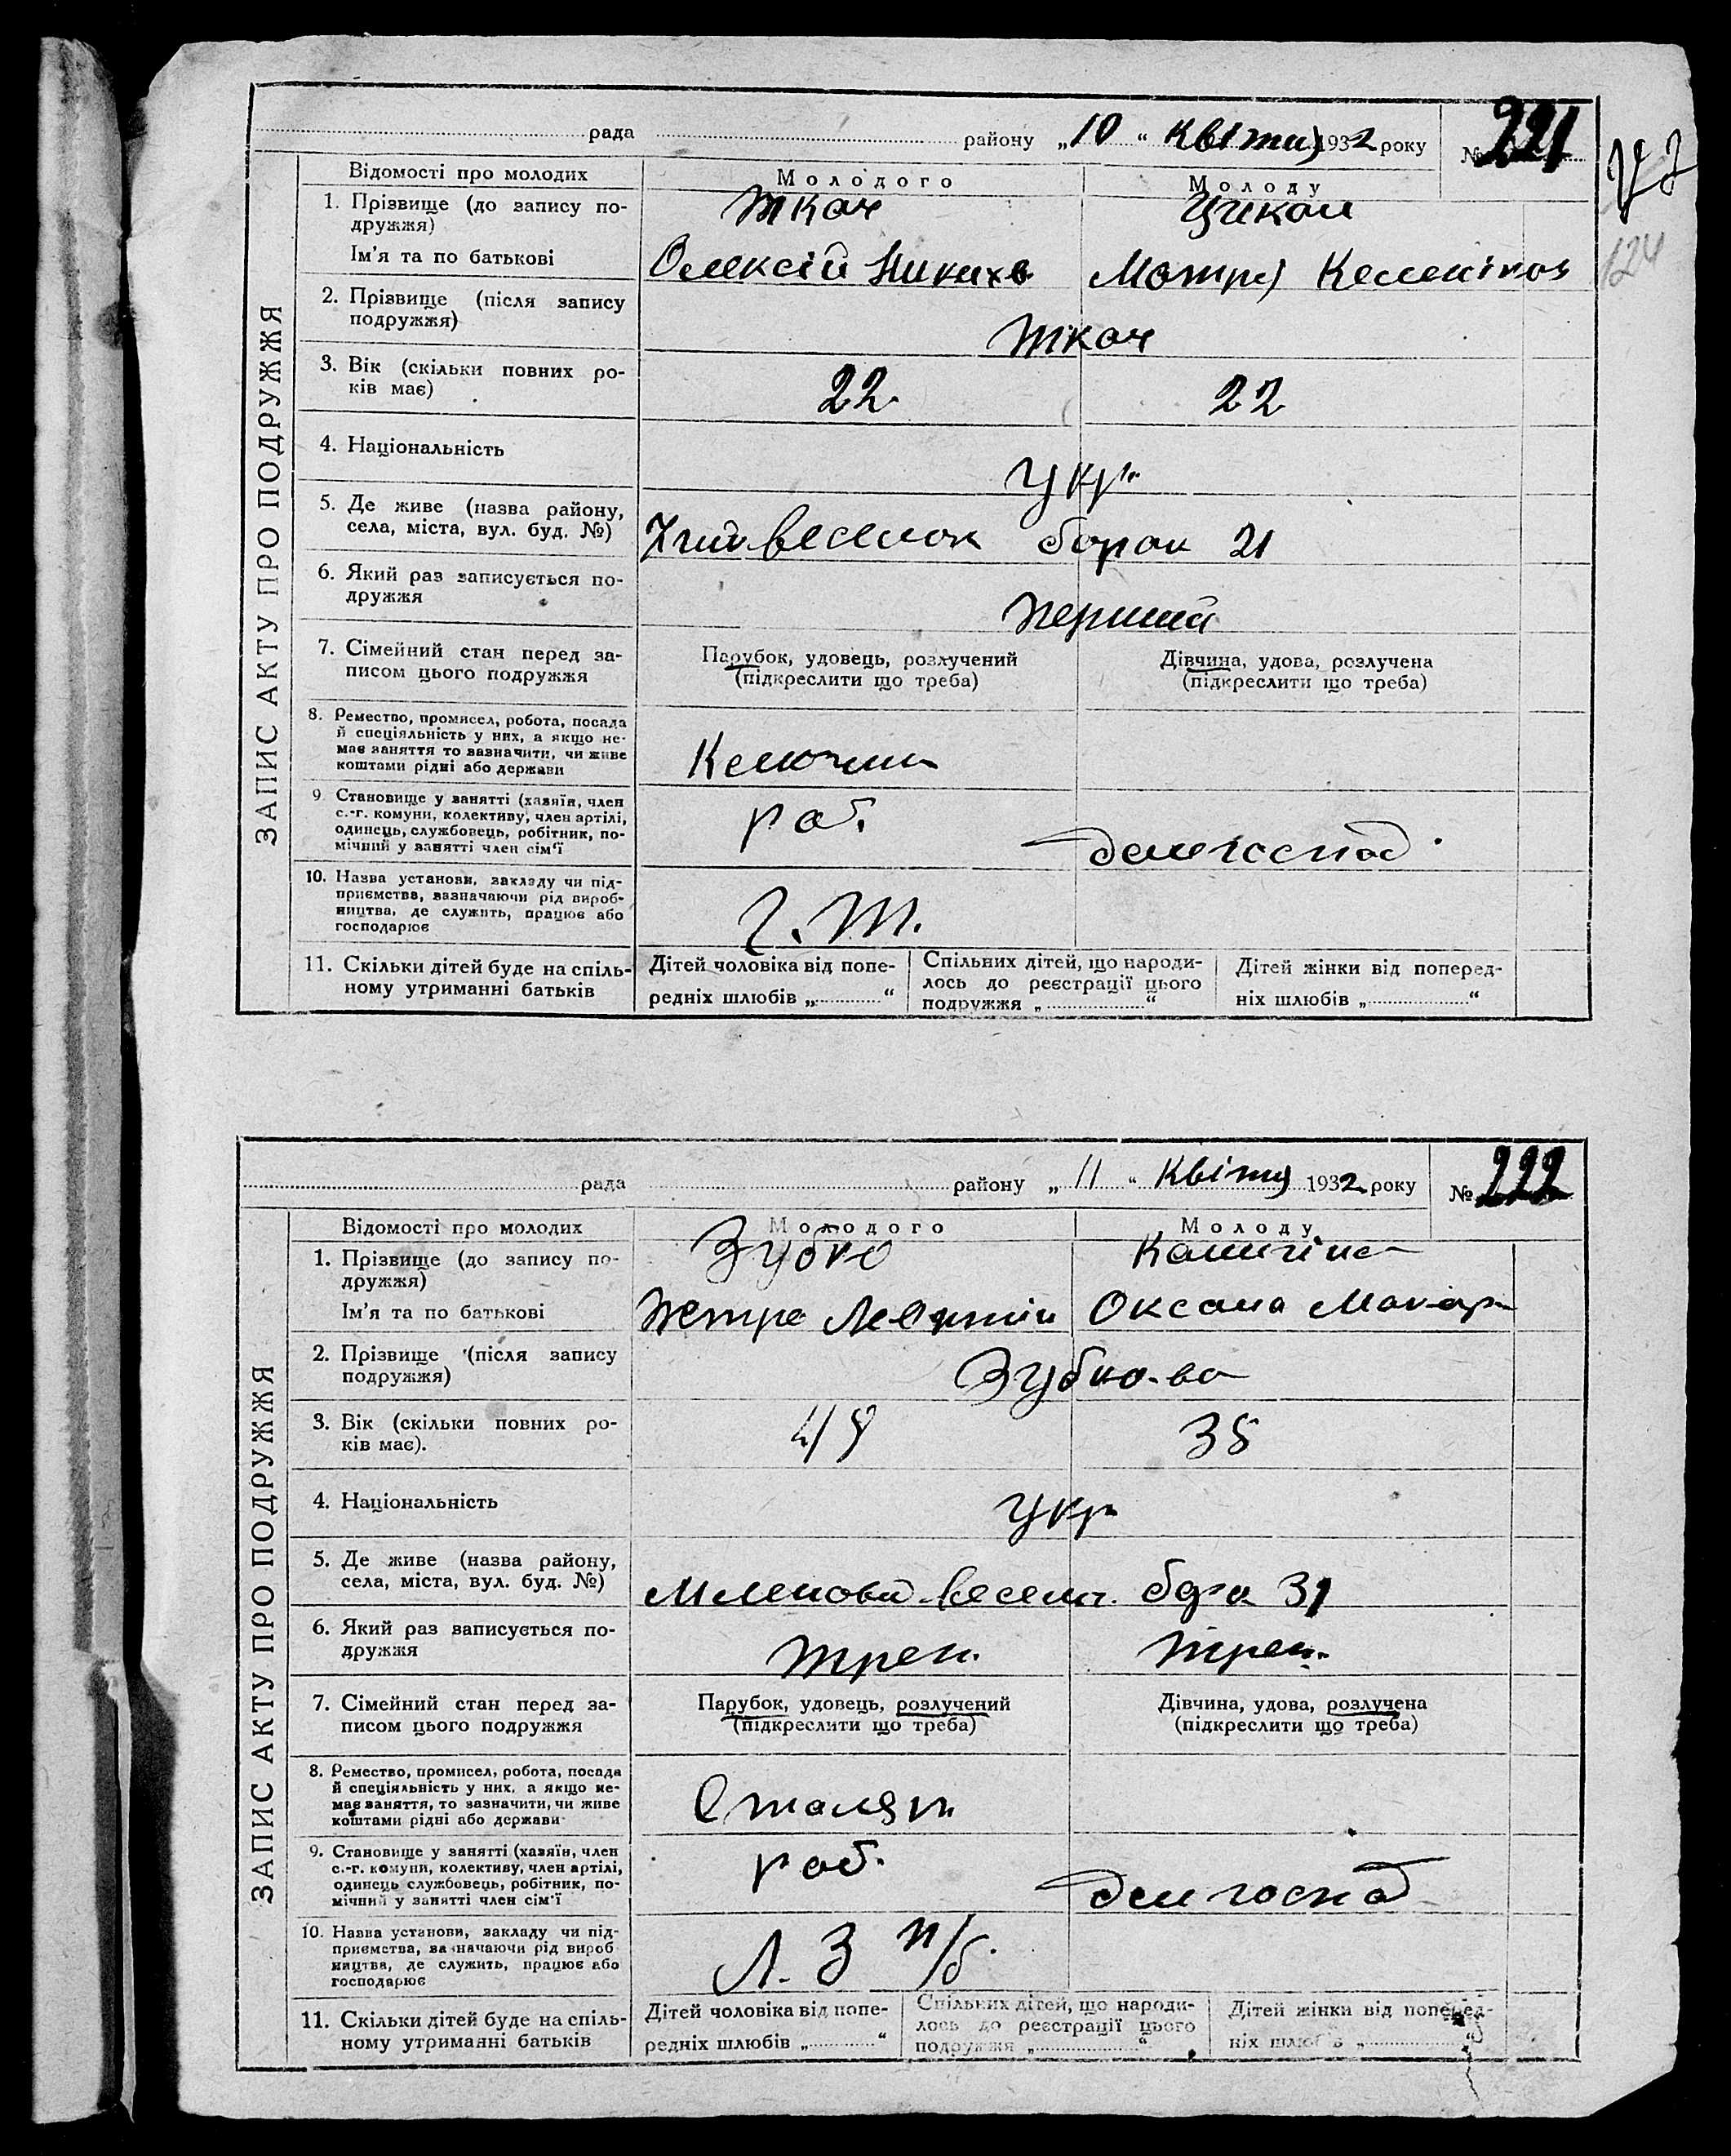 рада району „10“ Квітня 1932 року № 221
124
ЗАПИС АКТУ ПРО ПОДРУЖЖЯ
Відомості про молодих Молодого Молоду
1. Прізвище (до запису по-
дружжя)
Ткач
Ім'я та по батькові Олексій Мотря
2. Прізвище (після запису
подружжя)
Ткач
3. Вік (скільки повних ро-
ків має)
22 22
4. Національність
укр.
5. Де живе (назва району,
села, міста, вул. буд. №)
барак 21
6. Який раз записується по-
дружжя
перший
7. Сімейний стан перед за-
писом цього подружжя
Парубок, удовець, розлучений
(підкреслити що треба)
Дівчина, удова, розлучена
(підкреслити що треба)
8. Ремество, промисел, робота, посада
й спеціяльність у них, а якщо не-
має заняття то зазначити, чи живе
коштами рідні або держави
9. Становище у занятті (хазяїн, член
с.-г. комуни, колективу, член артілі,
одинець, службовець, робітник, по-
мічний у занятті член сім'ї
роб. домгоспод.
10. Назва установи, закладу чи під-
приємства, зазначаючи рід вироб-
ництва, де служить, працює або
господарює
11. Скільки дітей буде на спіль-
ному утриманні батьків
Дітей чоловіка від попе-
редніх шлюбів „ “
Спільних дітей, що народи-
лось до реєстрації цього
подружжя „ “
Дітей жінки від поперед-
ніх шлюбів „ “
рада району „11“ Квітня 1932 року № 222
ЗАПИС АКТУ ПРО ПОДРУЖЖЯ
Відомості про молодих Молодого Молоду
1. Прізвище (до запису по-
дружжя)
Зубко
Ім'я та по батькові Петро Оксана Макар
2. Прізвище (після запису
подружжя)
Зубко-ва
3. Вік (скільки повних ро-
ків має).
4. Національність
укр
5. Де живе (назва району,
села, міста, вул. буд. №)
31
6. Який раз записується по-
дружжя
трет. трет.
7. Сімейний стан перед за-
писом цього подружжя
Парубок, удовець, розлучений
(підкреслити що треба)
Дівчина, удова, розлучена
(підкреслити що треба)
8. Ремество, промисел, робота, посада
й спеціяльність у них, а якщо не-
має заняття, то зазначити, чи живе
коштами рідні або держави
Столяр
9. Становище у занятті (хазяїн, член
с.-г. комуни, колективу, член артілі,
одинець службовець, робітник, по-
мічний у занятті член сім'ї
роб. домгоспод
10. Назва установи, закладу чи під-
приємства, зазначаючи рід вироб-
ництва, де служить, працює або
господарює
Л. З п/б.
11. Скільки дітей буде на спіль-
ному утриманні батьків
Дітей чоловіка від попе-
редніх шлюбів „ “
Спільних дітей, що народи-
лось до реєстрації цього
подружжя „ “
Дітей жінки від поперед-
ніх шлюбів „ “